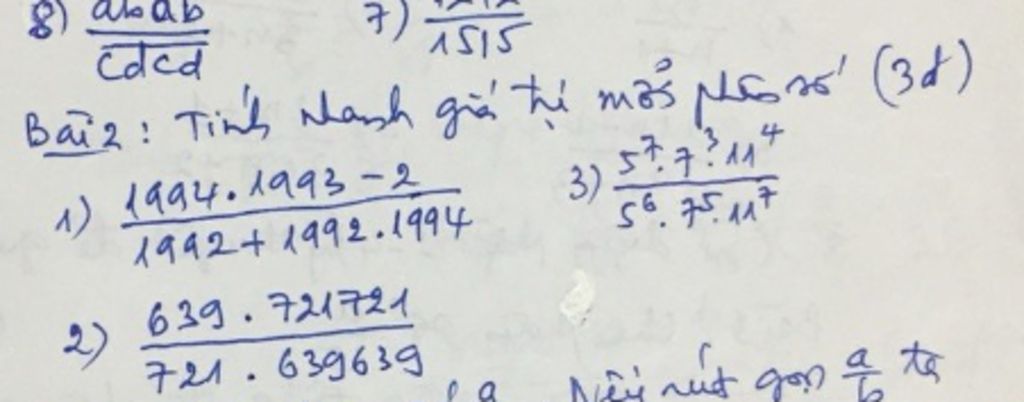 8) abab / cdcd
7) / 1515
Bài 2: Tính nhanh giá trị mỗi phân số (3đ)
1) 1994.1993-2 / 1992+1992.1994
3) 5⁷.7³.11⁴ / 5⁶.7⁵.11⁷
2) 639.721721 / 721.639639
Nếu rút gọn a/b ta